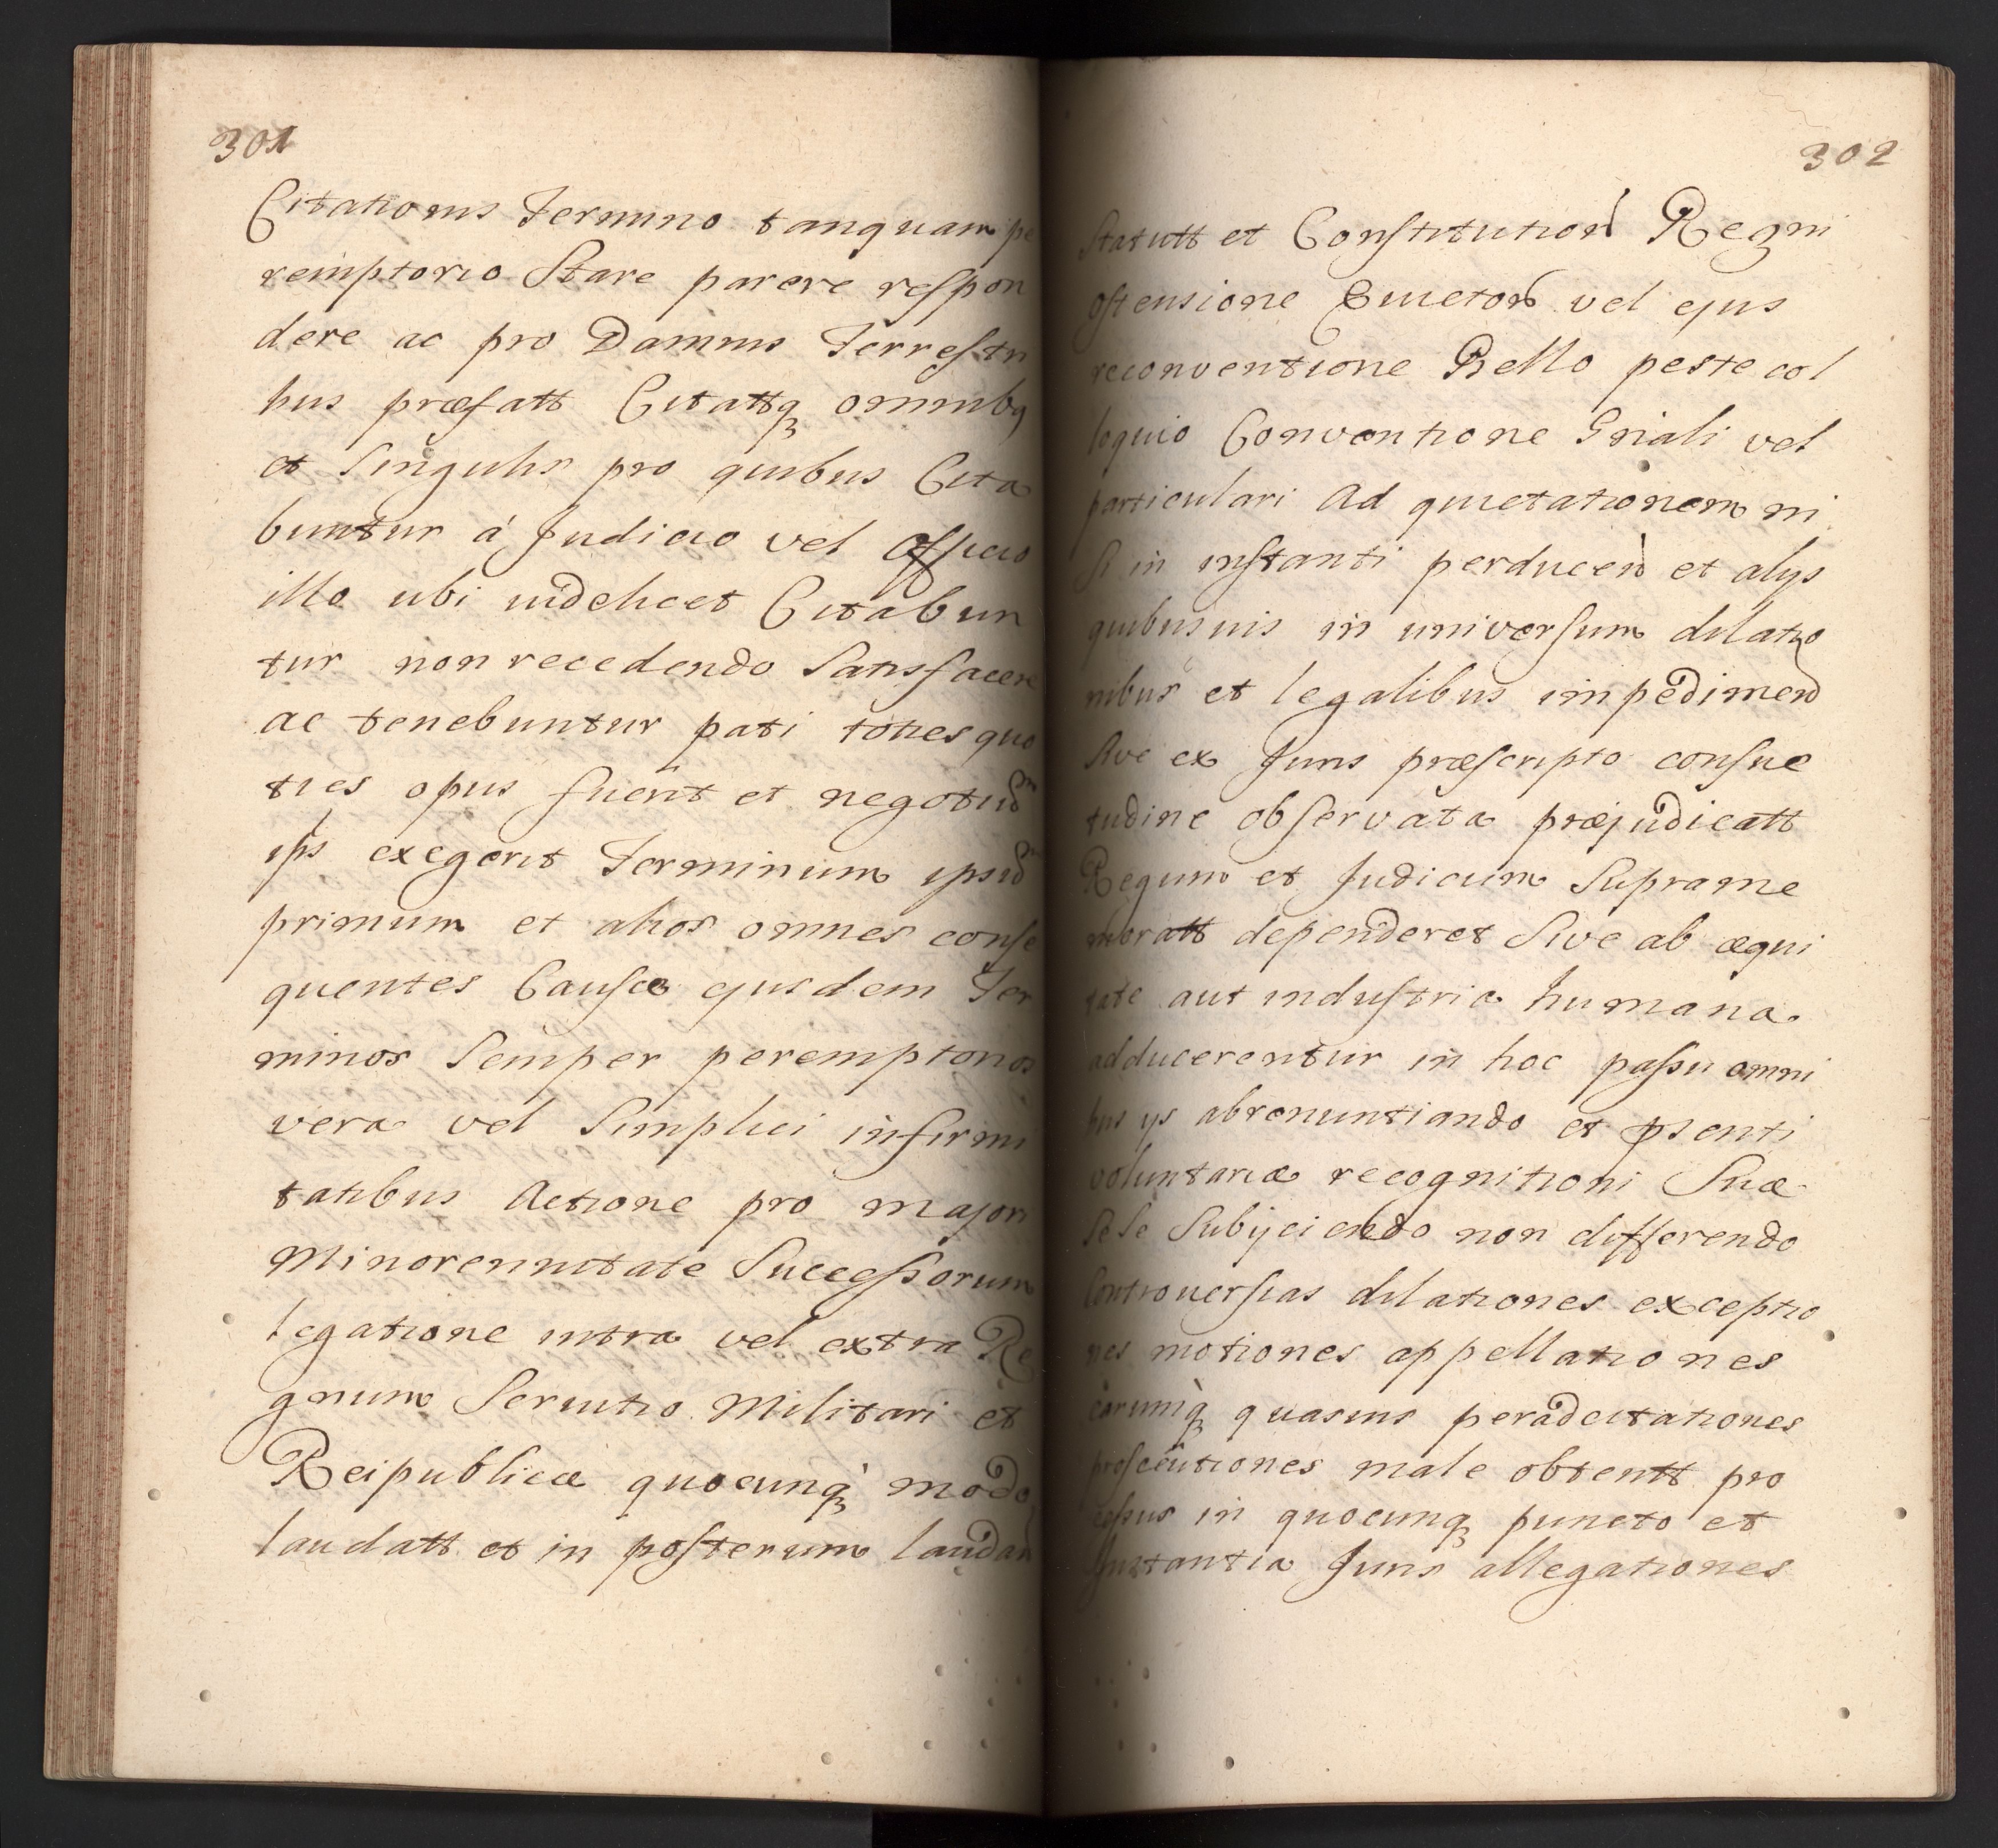 301
Citationis Termino tanquam pe
remptorio Stare parere respon
dere ac pro Damnis Terrestri
bus præfatt Citattq omnibq
et Singulis pro quibus Cita
buntur á Judicio vel officio
illo ubi videlicet Citabun
tur non recedendo Satisfacere
ac tenebuntur pati toties quo
ties opus fuerit et negotiu
ips exegerit Terminum ipsu
primum et alios omnes conse
quentes Causæ ejusdem Ter
minos Semper peremptorios
vera vel Simplici infirmi
tatibus Actione pro majori
Minorennitate Successorum
legatione intra vel extra Re
gnum Servitio Militari et
Reipublicæ quocunq modo
laudatt et in posterum laudan
302
Statutt et Constitution Regni
ostensione Evictor vel ejus
reconventione Bello peste col
loquio Conventione Gnali vel
particulari Ad quietationem ni
si in instanti perducen et alys
quibusvis in universum dilatio
nibus et legalibus impedimen
Sive ex Juris præscripto consue
tudine observata præjudicatt
Regum et Judicium Suprame
moratt dependeret Sive ab æqui
tate aut industria humana
adducerentur in hoc passu omni
bus ys abrenuntiando et psenti
voluntariæ recognitioni Suæ
Se Se Subijciendo non differendo
Controversias dilationes exceptio
nes motiones appellationes
earumq quasvis peradcitationes
prosecutiones male obtentt pro
cessus in quocunq puncto et
Instantia Juris allegationes